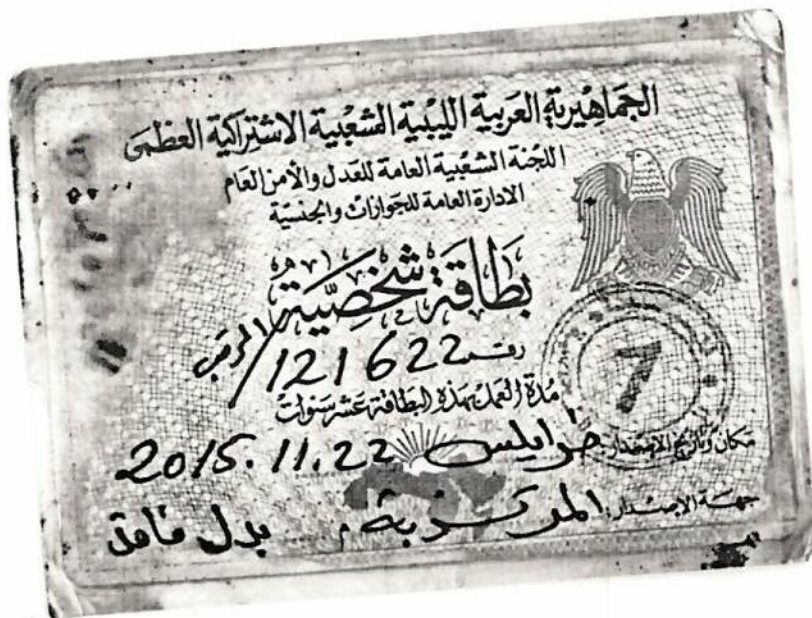 الجماهيرية العربية الليبية الشعبية الاشتراكية العظمى
اللجنة الشعبية العامة للعدل والأمن العام
الادارة العامة للجوازات والجنسية
بطاقة شخصية
رقم 121622 / المرقب
مدة العمل بهذه البطاقة عشر سنوات
مكان وتاريخ الاصدار: طرابلس 2015.11.22
جهة الاصدار: المركزية بدل فاقد
7